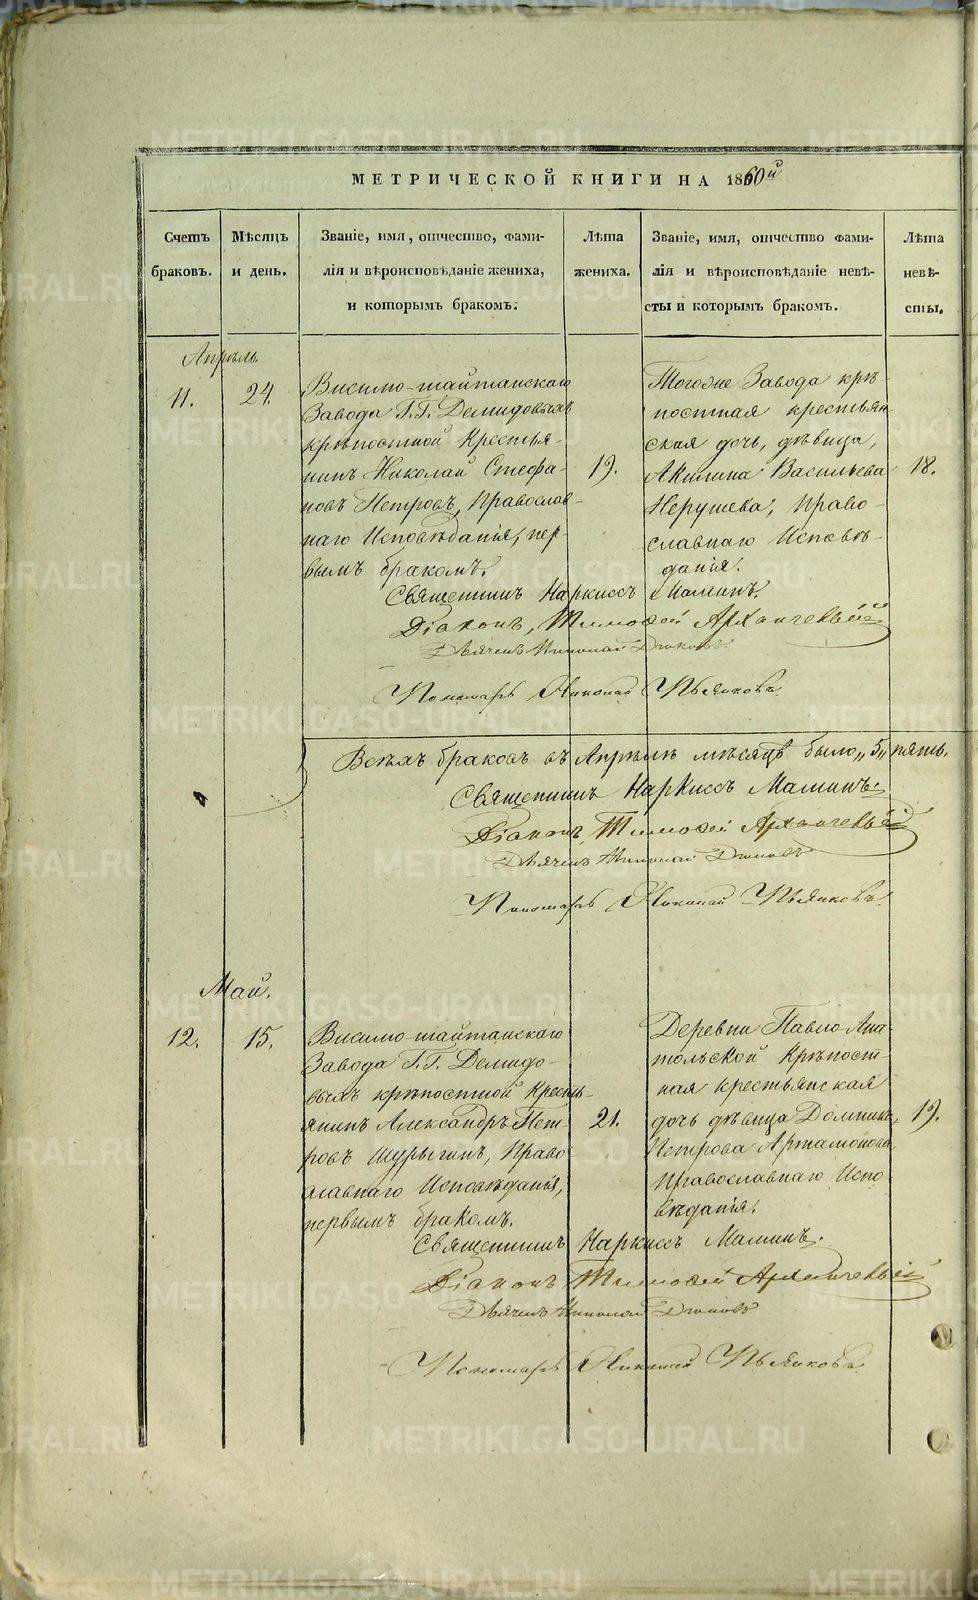 МЕТРИЧЕСКОЙ КНИГИ НА 1860й
Счетъ браковъ.
Мѣсяцъ и день.
Званіе, имя, отчество, фами-
лія и вѣроисповѣданіе жениха,
и которымъ бракомъ.
Лѣта жениха.
Званіе, имя, отчество фами-
лія и вѣроисповѣданіе невѣ-
сты и которымъ бракомъ.
Лѣта невѣ-
сты.
Апрѣль
11.
24.
Висимо-шайтанскаго
Завода Г.Г. Демидовыхъ
крѣпостной Крестья-
нинъ Николай Стефа-
новъ Петровъ, Православ-
наго Исповѣданія, пер-
вымъ бракомъ.
19.
Тогоже Завода крѣ-
постная крестьян-
ская дочь, дѣвица,
Акилина Васильева
Нерушева, Право-
славнаго Исповѣ-
данія.
18.
Священникъ Наркиссъ Маминъ.
Діаконъ, Тимофей
Дьячекъ Николай
Пономарь Николай Пьянковъ
Всѣхъ браковъ въ Апрѣлѣ мѣсяцѣ было „5„ пять.
Священникъ Наркиссъ Маминъ.
Діаконъ, Тимофей
Дьячекъ Николай
Пономарь Николай Пьянковъ.
Май.
12.
15.
Висимо-шайтанскаго
Завода Г.Г. Демидо-
выхъ крѣпостной Кресть-
янинъ Александръ Пет-
ровъ Шурыгинъ, Право-
славнаго Исповѣданія,
первымъ бракомъ.
21.
Деревни Павло-Ана-
тольской Крѣпост-
ная крестьянская
дочь дѣвица Домника
Петрова Артамонова
Православнаго Испо-
вѣданія.
19.
Священникъ Наркиссъ Маминъ.
Діаконъ Тимофей
Дьячекъ Николай
Пономарь Николай Пьянковъ
METRIKI.GASO-URAL.RU